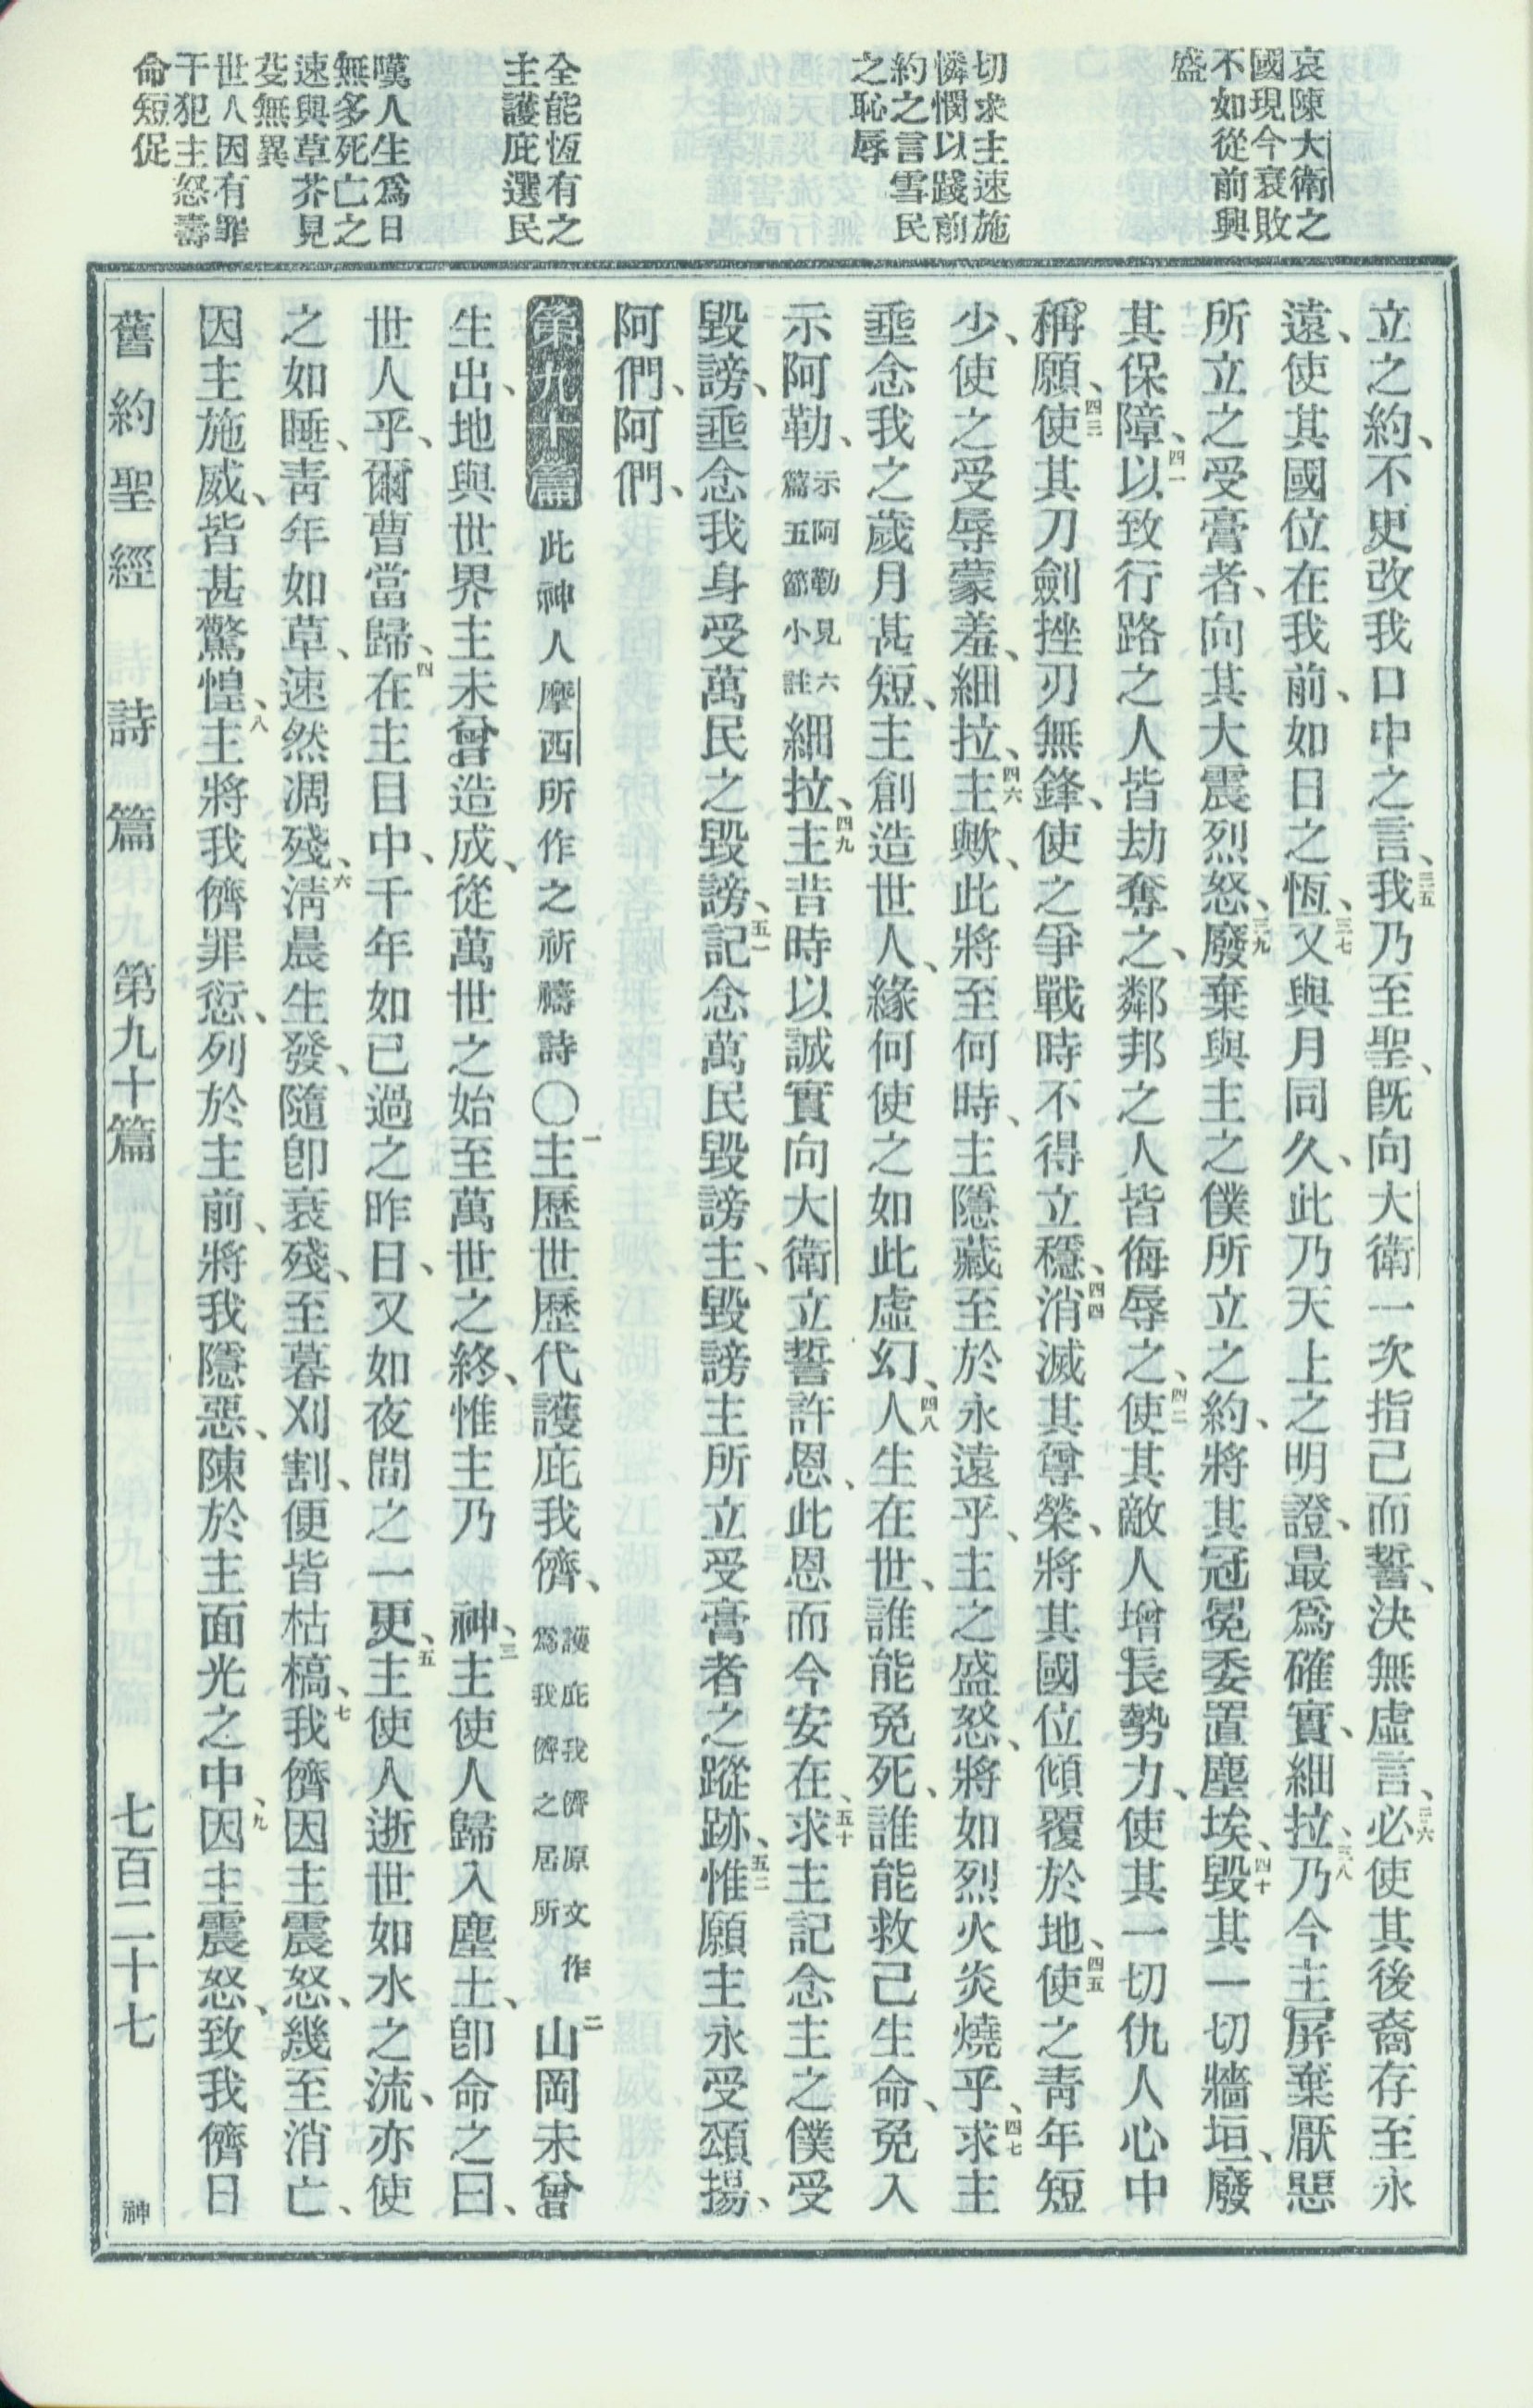 哀陳大衛之
國現今衰敗
不如從前興
盛
切求主速施
憐憫以踐前
約之言雪民
之恥辱
全能恆有之
主護庇選民
嘆人生爲日
無多死亡之
速與草芥見
芟無異
世人因有罪
干犯主怒壽
命短促
立之約、不更改我口中之言、三五我乃至聖、旣向大衛一次指己而誓、決無虛言、三六必使其後裔存至永
遠、使其國位在我前、如日之恆、三七又與月同久、此乃天上之明證、最爲確實、細拉、三八乃今主屛棄厭惡
所立之受膏者、向其大震烈怒、三九廢棄與主之僕所立之約、將其冠冕委置塵埃、四十毀其一切牆垣、廢
其保障、四一以致行路之人皆劫奪之、鄰邦之人皆侮辱之、四二使其敵人增長勢力、使其一切仇人心中
稱願、四三使其刀劍挫刃無鋒、使之爭戰時不得立穩、四四消滅其尊榮、將其國位傾覆於地、四五使之靑年短
少、使之受辱蒙羞、細拉、四六主歟、此將至何時、主隱藏至於永遠乎、主之盛怒、將如烈火炎燒乎、四七求主
垂念我之歲月甚短、主創造世人、緣何使之如此虛幻、四八人生在世、誰能免死、誰能救己生命、免入
示阿勒、示阿勒見六篇五節小註細拉、四九主昔時以誠實向大衛立誓許恩、此恩而今安在、五十求主記念主之僕受
毀謗、垂念我身受萬民之毀謗、五一記念萬民毀謗主、毀謗主所立受膏者之蹤跡、五二惟願主永受頌揚、
阿們、阿們、
第九十篇 此神人摩西所作之祈禱詩〇一主歷世歷代護庇我儕、護庇我儕原文作爲我儕之居所二山岡未曾
生出、地與世界主未曾造成、從萬世之始至萬世之終、惟主乃 神、三主使人歸入塵土、卽命之曰、
世人乎、爾曹當歸、四在主目中、千年如已過之昨日、又如夜間之一更、五主使人逝世如水之流、亦使
之如睡、靑年如草、速然凋殘、六淸晨生發、隨卽衰殘、至暮刈割、便皆枯槁、七我儕因主震怒、幾至消亡、
因主施威、皆甚驚惶、八主將我儕罪愆、列於主前、將我隱惡、陳於主面光之中、九因主震怒、致我儕日
舊約聖經 詩篇 第九十篇 七百二十七 神